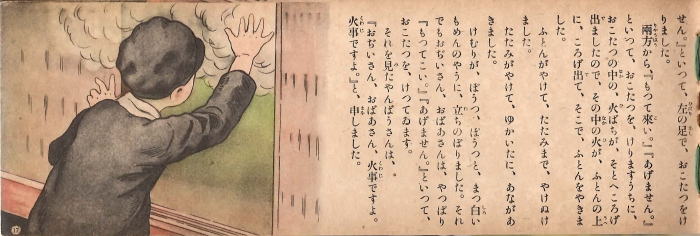 せん。』といつて、左の足で、おこたつをけ
りました。
兩方から『もつて來い。』『あげません。』
といつて、おこたつを、けりますうちに、
おこたつの中の、火ばちが、そとへころげ
出ましたので、その中の火が、ふとんの上
に、ころげ出て、そこで、ふとんをやきま
した。
ふとんがやけて、たたみまで、やけぬけ
ました。
たたみがやけて、ゆかいたに、あながあ
きました。
けむりが、ぼうつ、ぼうつと、まつ白い
もめんのやうに、立ちのぼりました。それ
でもおぢいさん、おばあさんは、やつぱり
『もつてこい。』『あげません。』といつて、
おこたつを、けつてゐます。
それを見たやんぼうさんは、
『おぢいさん、おばあさん、火事ですよ。
火事ですよ。』と、申しました。
17